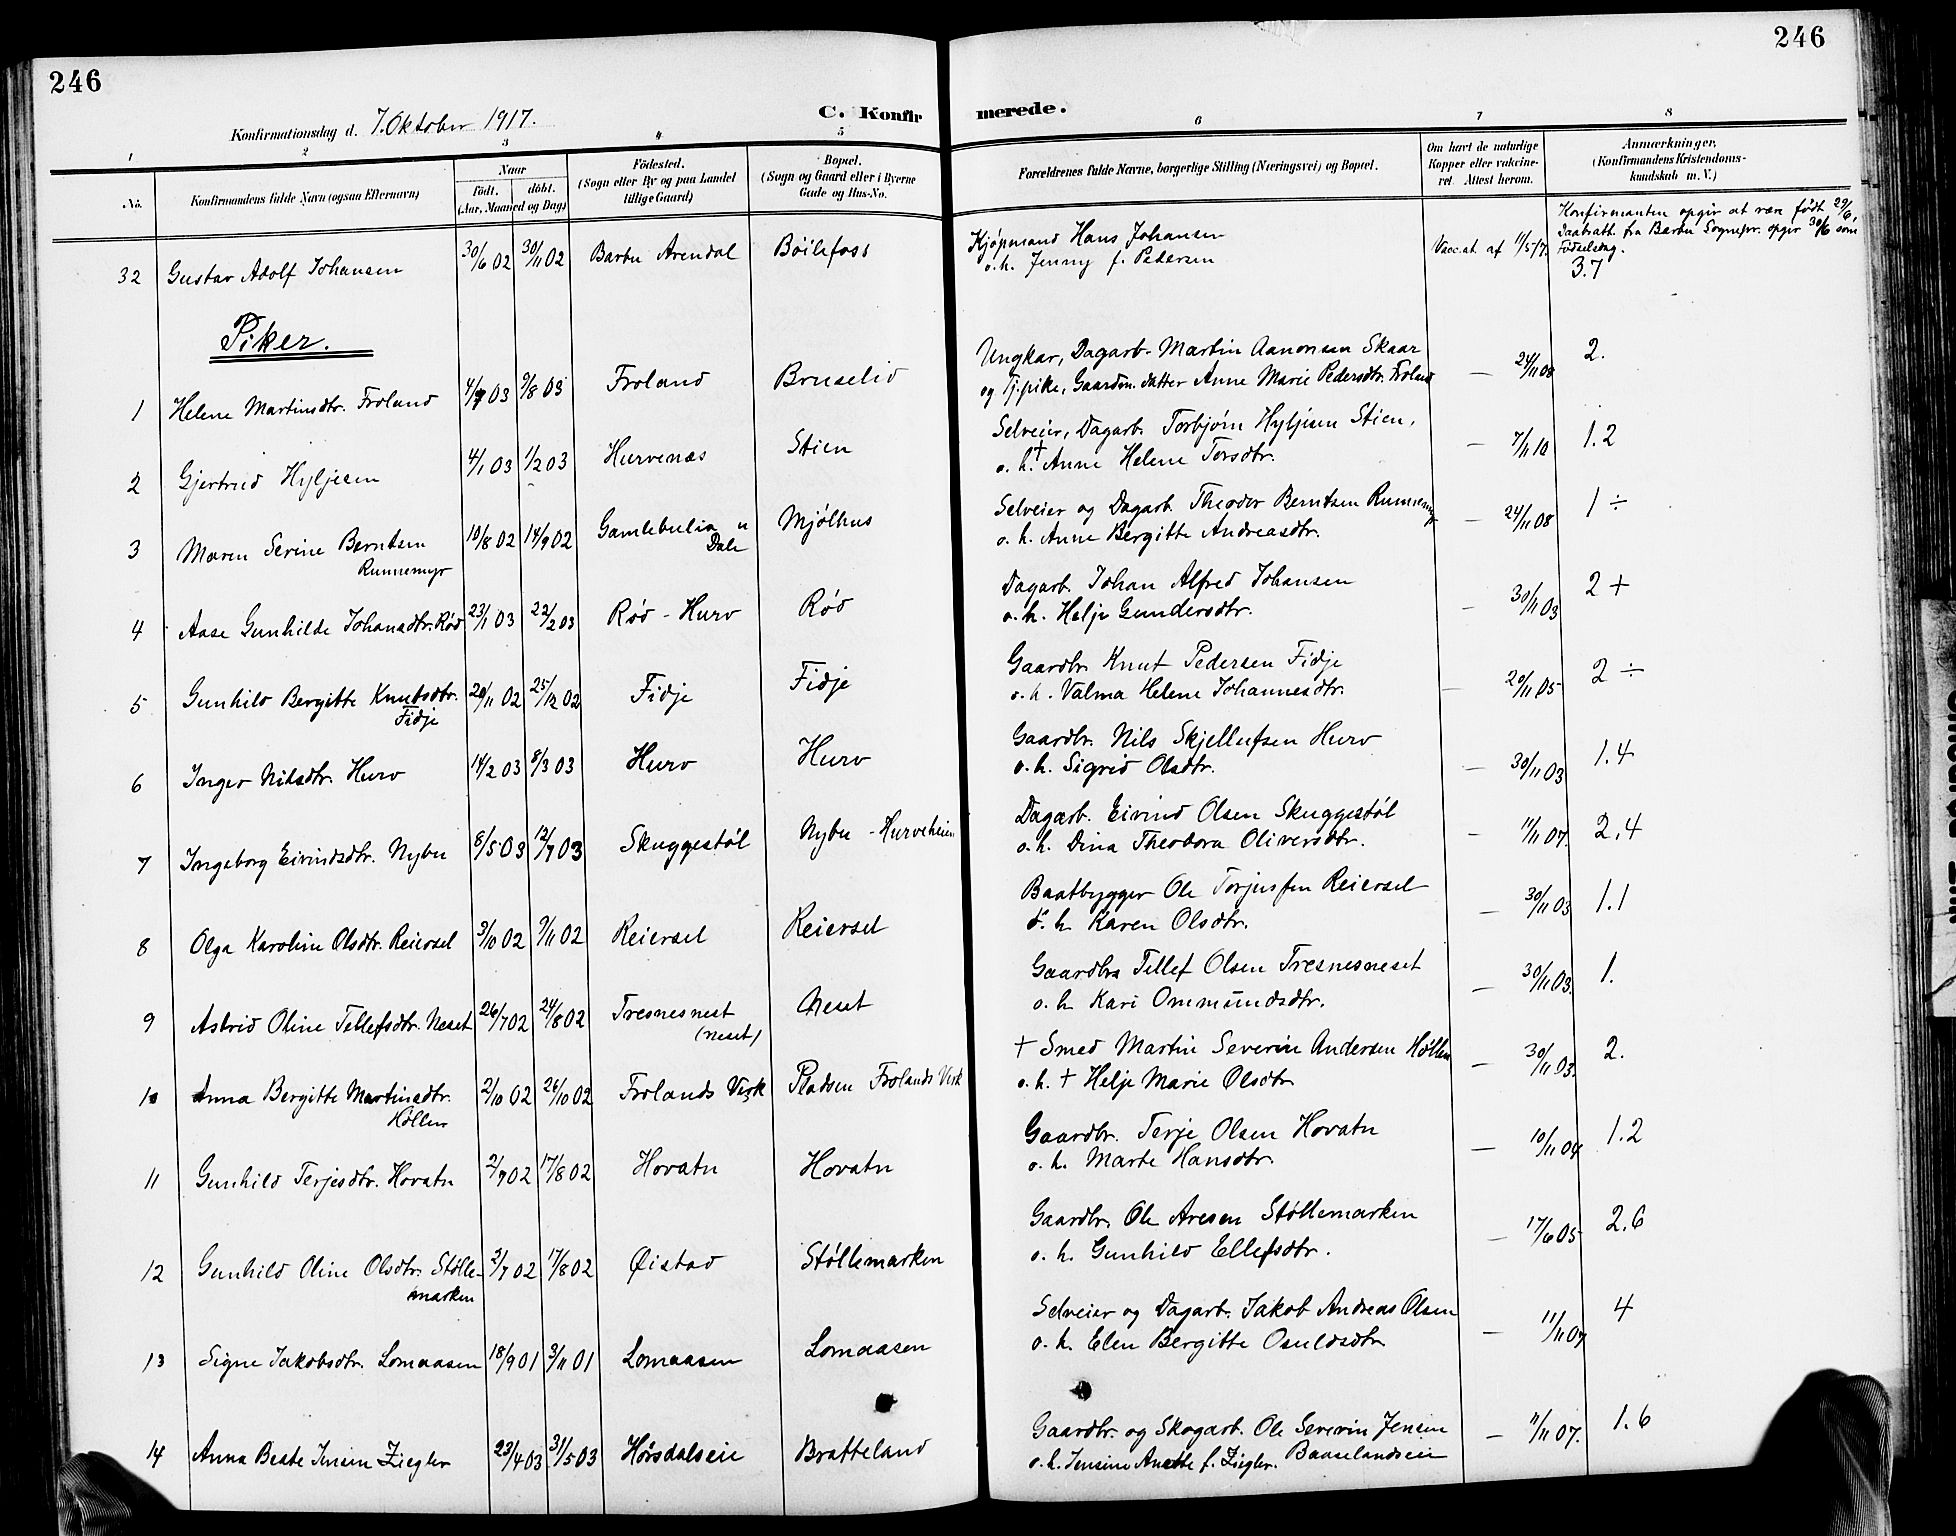 246
246
Konfirmationsdag d. 7. Oktober 1917.
C. Konfirmerede.
1 2 3 4 5 6 7 8
No.
Konfirmandens fulde Navn (ogsaa Efternavn)
Naar
født. døbt.
(Aar, Maaned og Dag)
Fødested.
(Sogn eller By og paa Landet
tillige Gaard)
Bopæl.
(Sogn og Gaard eller i Byerne
Gade og Hus-No.
Forældrenes fulde Navne, borgerlige Stilling (Næringsvei) og Bopæl.
Om havt de naturlige
Kopper eller vakcine-
ret. Attest herom.
Anmærkninger,
(Konfirmandens Kristendoms-
kundskab m. V.)
32 Gustav Adolf Johansen 30/6 02 30/11 02 Barbu Arendal Bøilefoss
Kjøpmand Hans Johansen
o. h. Jenny f. Pedersen
Vacc.at. af
Konfirmanten opgir at være født 29/6,
Daabsatt. fra Barbu Sognepr. opgir 30/6 som
Fødselsdag.
3.7
Piker.
1 Helene Martinsdtr. Froland 4/7 03 9/8 03 Froland Bruselid
Ungkar, Dagarb. Martin Aanonsen Skaar
og Tj.pike, Gaardm. datter Anne Marie Pedersdtr. Froland
— 24/11 08 2.
2 Gjertrud Hyljesen 4/1 03 1/2 03 Hurvenæs Stien
Selveier, Dagarb. Torbjørn Hyljesen Stien,
o. h. † Anne Helene Torsdtr.
— 7/11 10 1.2
3 Maren Serine Berntsen
Runnemyr
10/8 02 14/9 02 Gamlebulia u
Dale
Mjølhus
Selveier og Dagarb. Theodor Berntsen Runnemyr
o. h. Anne Bergitte Andreasdtr.
— 24/11 08 1 ÷
4 Aase Gunhilde Johansdtr. Rød 23/1 03 22/2 03 Rød - Hurv Rød
Dagarb. Johan Alfred Johansen
o. h. Helje Gundersdtr.
— 30/11 03 2 +
5 Gunhild Bergitte Knutsdtr.
Fidje
20/11 02 25/12 02 Fidje Fidje
Gaardbr. Knut Pedersen Fidje
o. h. Valma Helene Johannesdtr.
— 20/11 05 2 ÷
6 Inger Nilsdtr. Hurv 14/2 03 8/3 03 Hurv Hurv
Gaardbr. Nils Skjellufsen Hurv
o. h. Sigrid Olsdtr.
— 30/11 03 1.4
7 Ingeborg Eivindsdtr. Nybu 8/5 03 12/7 03 Skuggestøl Nybu - Hurveheien
Dagarb. Eivind Olsen Skuggestøl
o. h. Dina Theodora Oliversdtr.
— 11/11 07. 2.4
8 Olga Karoline Olsdtr. Reiersel 3/10 02 9/11 02 Reiersel Reiersel
Baatbygger Ole Torjusen Reiersel
o. h. Karen Olsdtr.
— 30/11 03 1.1
9 Astrid Oline Tellefsdtr. Neset 26/7 02 24/8 02 Tresnesnest
(neset)
Neset
Gaardbr. Tellef Olsen Tresnesneset
o. h. Kari Ommundsdtr.
— 30/11 03. 1.
10 Anna Bergitte Martinsdtr.
Høllen
2/10 02 26/10 02 Frolands Verk Pladsen Frolands Verk
† Smed Martin Severin Andersen Høllen
o. h. † Helje Marie Olsdtr
— 30/11 03. 2.
11 Gunhild Terjesdtr. Hovatn 2/7 02 17/8 02 Hovatn Hovatn
Gaardbr. Terje Olsen Hovatn
o. h. Marte Hansdtr.
— 10/11 04 1.2
12 Gunhild Oline Olsdtr. Stølle-
marken
3/7 02 17/8 02 Øistad Støllemarken
Gaardbr. Ole Aresen Støllemarken
o. h. Gunhild Ellefsdtr.
— 17/6 05 2.6
13 Signe Jakobsdtr. Lomaasen 18/9 01 3/11 01 Lomaasen Lomaasen
Selveier og Dagarb. Jakob Andreas Olsen
o. h. Elen Bergitte Osuldsdtr
— 11/11 07 4
14 Anna Beate Jensen Ziegler 23/4 03 31/5 03 Hørsdalseie Bratteland
Gaardbr. og Skogarb. Ole Severin Jensen
o. h. Jensine Anette f. Ziegler. Baaselandseie
— 11/11 07. 1.6